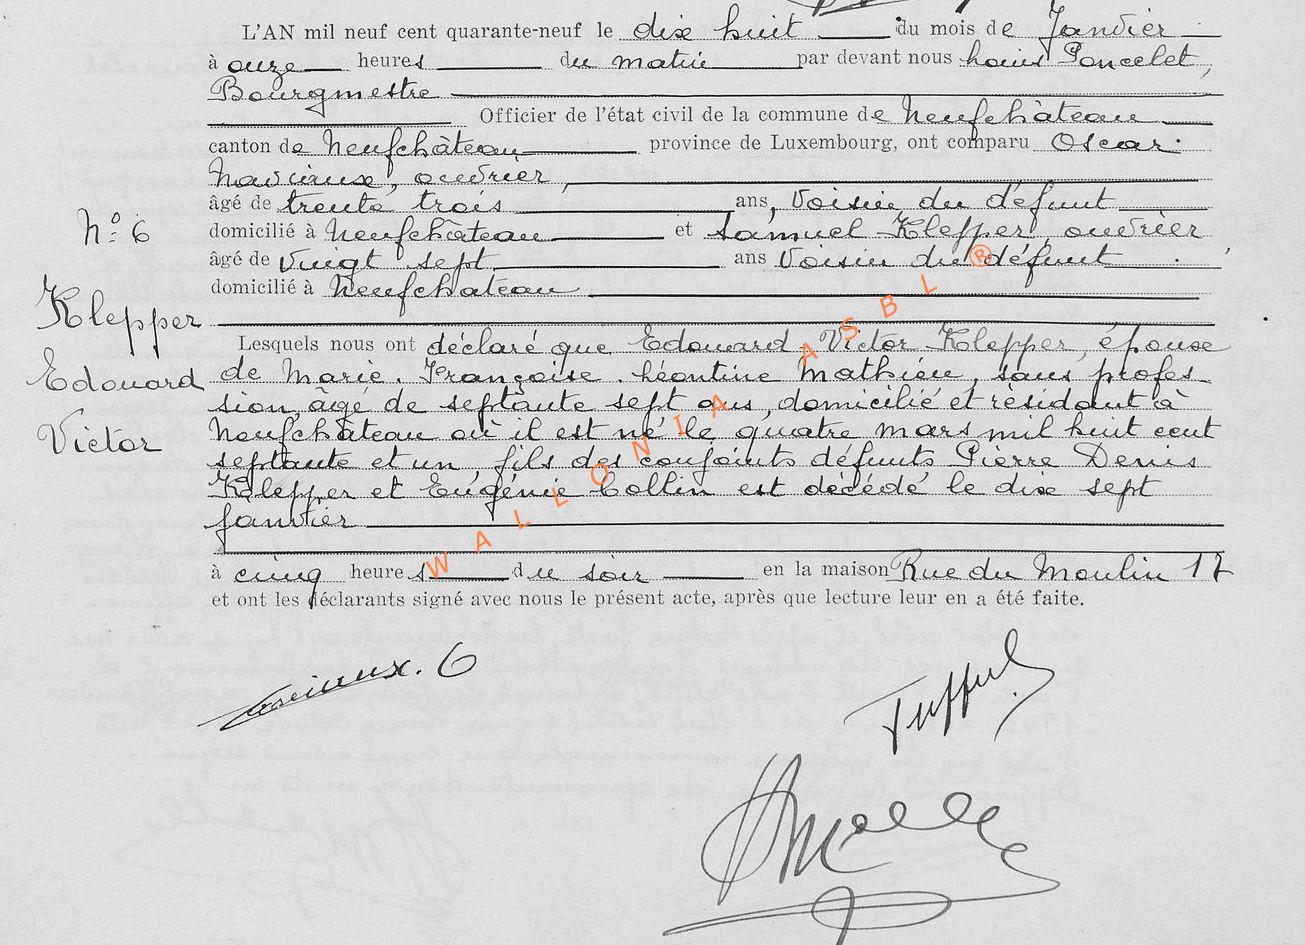 L'AN mil neuf cent quarante-neuf le dix huit du mois de Janvier
à onze heures du matin par devant nous Louis Poncelet,
Bourgmestre
Officier de l'état civil de la commune de Neufchâteau
canton de Neufchâteau province de Luxembourg, ont comparu Oscar
ouvrier,
âgé de trente trois ans, voisin du défunt
N° 6
domicilié à Neufchâteau et Samuel Klepper, ouvrier
âgé de vingt sept ans voisin du défunt
domicilié à Neufchâteau
Klepper
Edouard
Victor
Lesquels nous ont déclaré que Edouard Victor Klepper, épouse
de Marie. Françoise. Léontine Mathieu, sans profes-
sion, âgé de septante sept ans, domicilié et résidant à
Neufchâteau où il est né le quatre mars mil huit cent
septante et un, fils des conjoints défunts Pierre Denis
Klepper et Eugénie Collin est décédé le dix sept
janvier
à cinq heures du soir en la maison Rue du Moulin 17
et ont les déclarants signé avec nous le présent acte, après que lecture leur en a été faite.
WALLONIA ASBL ®